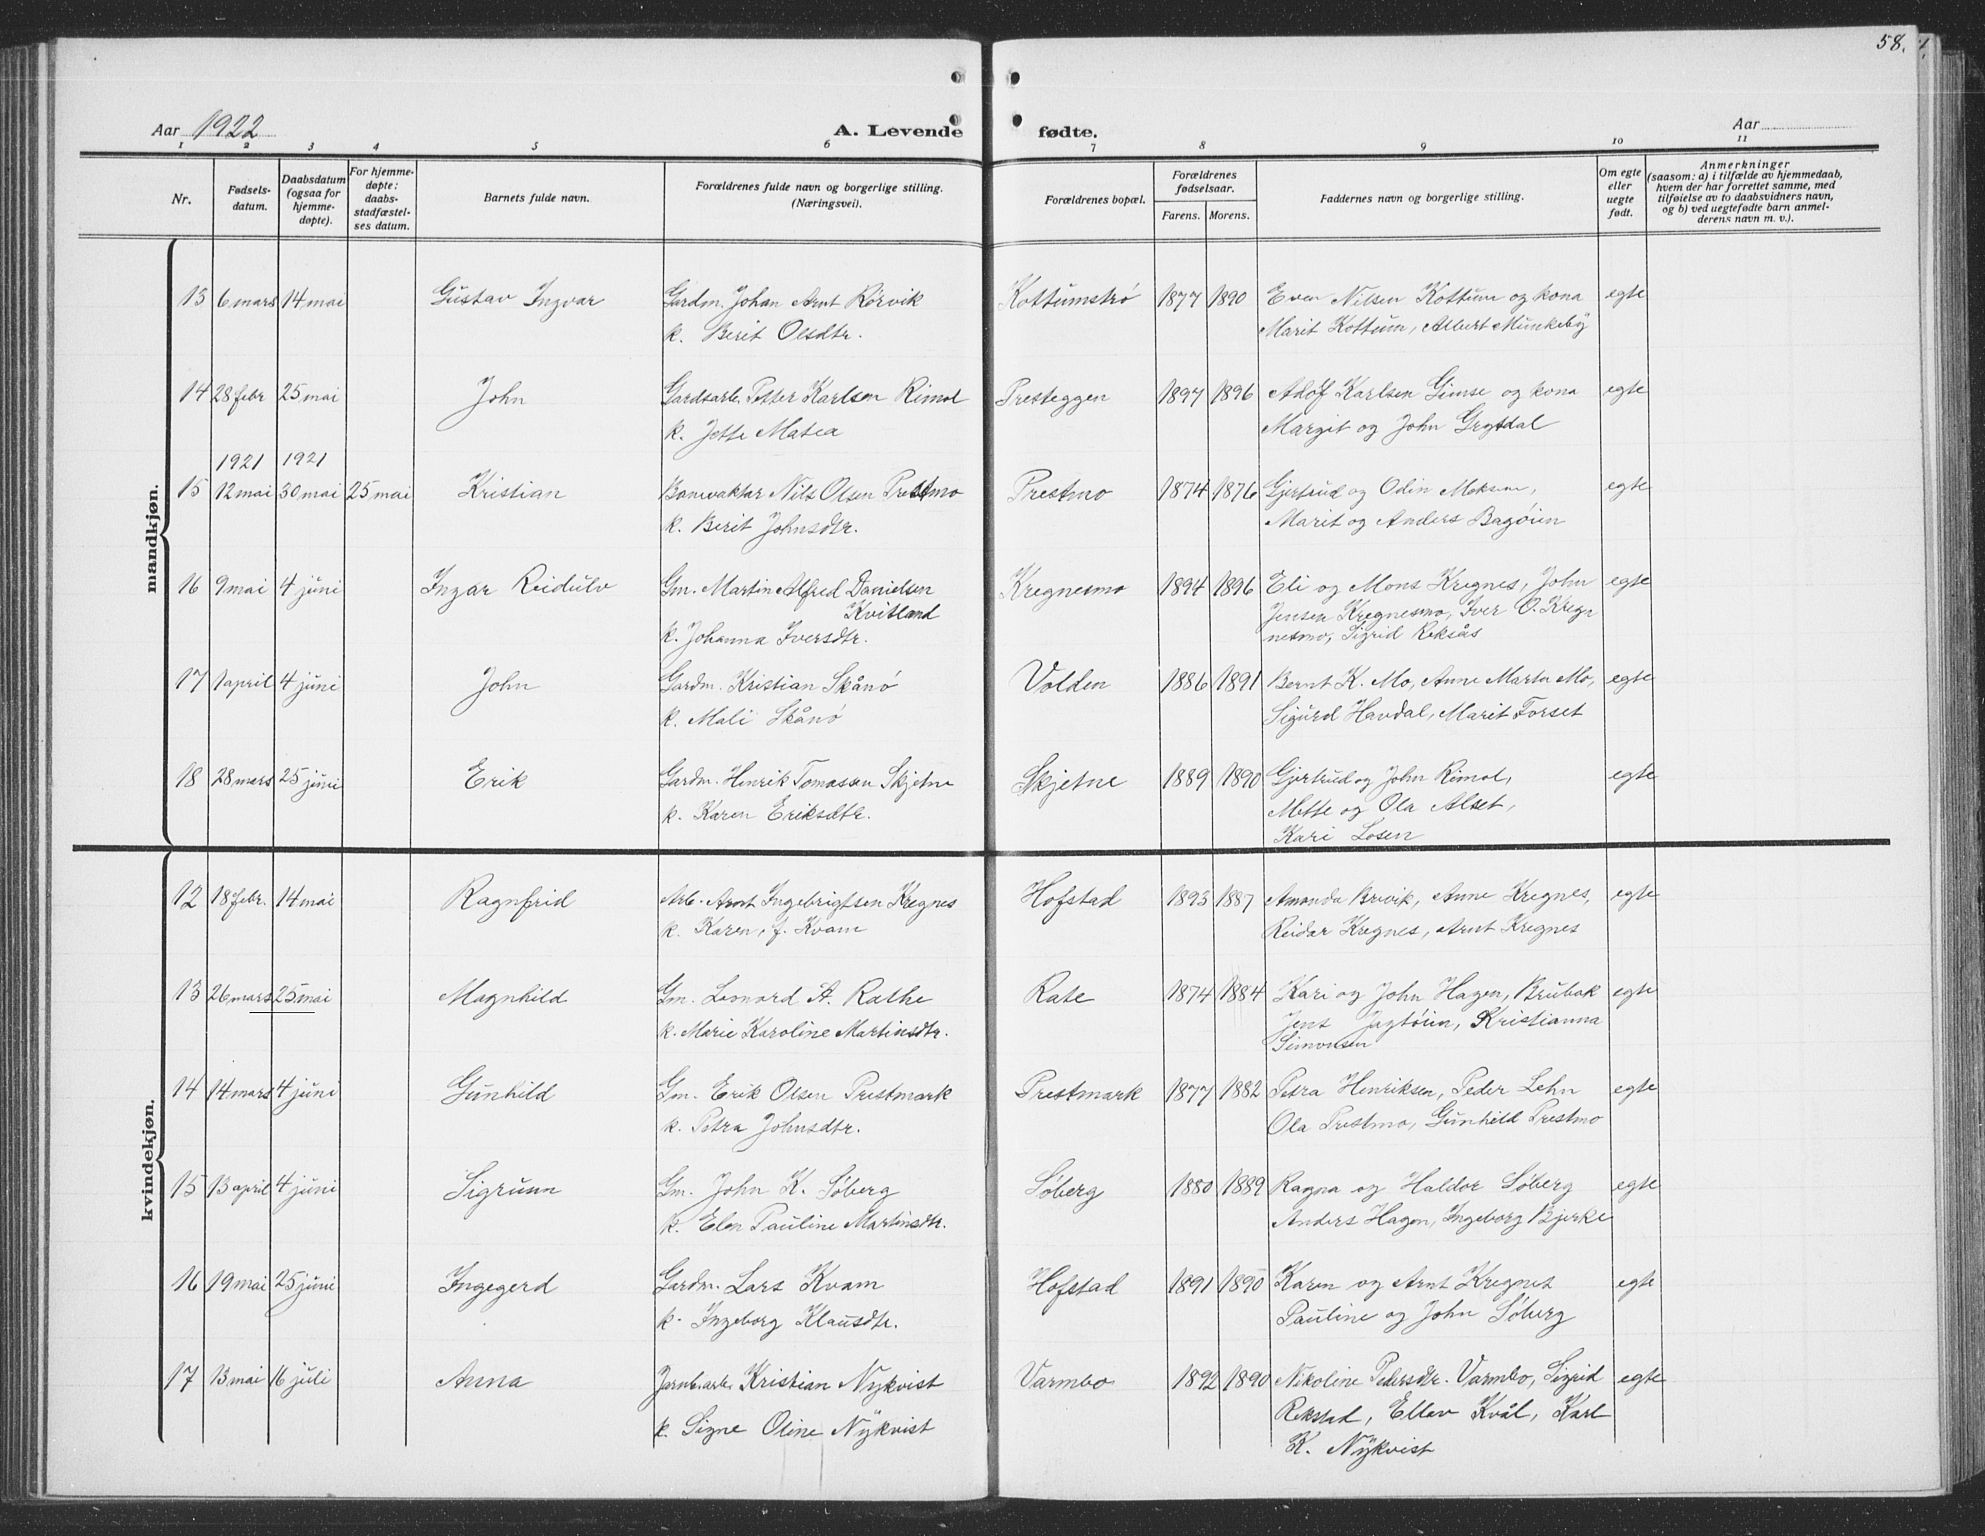 58.
Aar 1922 A. Levende fødte. Aar
1 2 3 4 5 6 7 8 9 10 11
Nr. Fødsels-datum. Daabsdatum (ogsaa for hjemme-døpte). For hjemme-døpte: daabs-stadfæstel-ses datum. Barnets fulde navn. Forældrenes fulde navn og borgerlige stilling. (Næringsvei). Forældrenes bopæl. Forældrenes fødselsaar. Farens. Morens. Faddernes navn og borgerlige stilling. Om egte eller uegte født. Anmerkninger (saasom: a) i tilfælde av hjemmedaab, hvem der har forrettet samme, med tilføielse av to daabsvidners navn, og b) ved uegtefødte barn anmel-derens navn m. v.).
mandkjøn.
13 6 mars 14 mai Gustav Ingvar Gardm. Johan Arnt Rørvik Kottumstrø 1877 1890 Even Nilsen Kottum og kona egte
k. Berit Olsdtr. Marit Kottum, Albert Munkeby
14 28 febr 25 mai John Gardsarb. Petter Karlsen Rimol Presteggen 1897 1896 Adolf Karlsen Gimse og kona egte
k. Jette Matea Margit og John Grytdal
1921 1921
15 12 mai 30 mai 25 mai Kristian Banevaktar Nils Olsen Prestmo Prestmo 1874 1876 Gjertrud og Odin Moksnes, egte
k. Berit Johnsdtr. Marit og Anders Bagøien
16 9 mai 4 juni Ingar Reidulv Gm. Martin Alfred Danielsen Kregnesmo 1894 1896 Eli og Mons Kregnes, John egte
Kvitland Jensen Kregnesmo, Iver O. Kregn
k. Johanna Iversdtr. nesmo, Sigrid Reksås
17 1 april 4 juni John Gardm. Kristian Skånø Volden 1886 1891 Bernt K. Mo, Anne Marta Mo, egte
k. Mali Skånø Sigurd Havdal, Marit Forset
18 28 mars 25 juni Erik Gardm. Henrik Tomassen Skjetne Skjetne 1889 1890 Gjertrud og John Rimol, egte
k. Karen Eriksdtr. Mette og Ola Alset,
Kari Losen
kvindekjøn.
12 18 febr. 14 mai Ragnfrid Arb. Arnt Ingebrigtsen Kregnes Hofstad 1893 1887 Amanda Brevik, Anne Kregnes, egte
k. Karen, f. Kvam Reidar Kregnes, Arnt Kregnes
13 26 mars 25 mai Magnhild Gm. Leonard A. Rathe Rate 1874 1884 Kari og John Hagen, Brubak egte
k. Marie Karoline Martinsdtr. Jens Jagtøien, Kristianna
Simonsen
14 14 mars 4 juni Gunhild Gm. Erik Olsen Prestmark Prestmark 1877 1882 Petra Henriksen, Peder Lehn egte
k. Petra Johnsdtr. Ola Prestmo, Gunhild Prestmo
15 13 april 4 juni Sigrunn Gm. John K. Søberg Søberg 1880 1889 Ragna og Haldor Søberg egte
k. Elen Pauline Martinsdtr. Anders Hagen, Ingeborg Bjerke
16 19 mai 25 juni Ingegerd Gardm. Lars Kvam Hofstad 1891 1890 Karen og Arnt Kregnes egte
k. Ingeborg Klausdtr. Pauline og John Søberg
17 13 mai 16 juli Anna Jarnb.arb. Kristian Nykvist Varmbo 1892 1890 Nikoline Pedersdtr. Varmbo, Sigrid egte
k. Signe Oline Nykvist Rekstad, Ellev Kvål, Karl
K. Nykvist